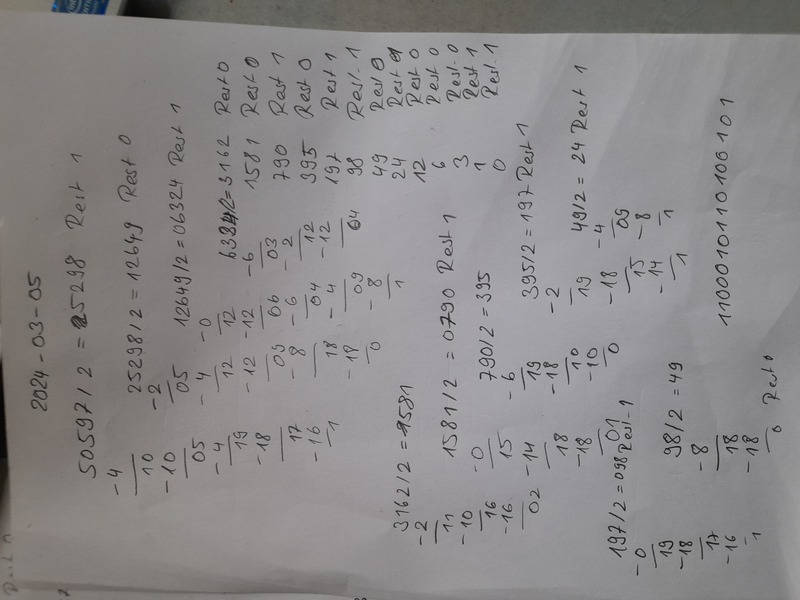 2024-03-05
50597/2 = 25298 Rest 1
-4
10
-10
05
-4
19
-18
17
-16
1
25298/2 = 12649 Rest 0
-2
05
-4
12
-12
09
-8
18
-18
0
12649/2 = 06324 Rest 1
-0
12
-12
06
-6
04
-4
09
-8
1
6324/2 = 3162 Rest 0
-6
03
-2
12
-12
04
1581 Rest 0
790 Rest 1
395 Rest 0
197 Rest 1
98 Rest 1
49 Rest 0
24 Rest 1
12 Rest 0
6 Rest 0
3 Rest 0
1 Rest 1
0 Rest 1
3162/2 = 1581
-2
11
-10
16
-16
02
1581/2 = 0790 Rest 1
-0
15
-14
18
-18
01
790/2 = 395
-6
19
-18
10
-10
0
395/2 = 197 Rest 1
-2
19
-18
15
-14
1
49/2 = 24 Rest 1
-4
09
-8
1
197/2 = 098
Rest 1
-0
19
-18
17
-16
1
98/2 = 49
-8
18
-18
0 Rest 0
1100010110100101